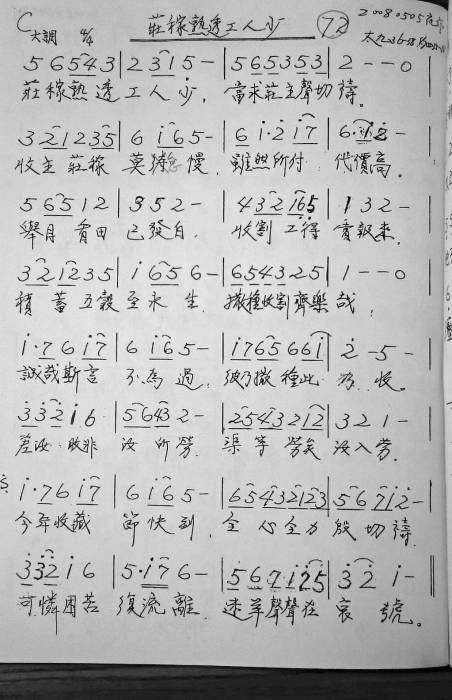 C大調 4/4 莊稼熟透工人少 72 20080505
5 6 5 4 3 | 2 3 1 5 - | 5 6 5 3 5 3 | 2 - - 0
莊稼熟透工人少, 當求莊主聲切禱。
3 2 1 2 3 5 | 6 i 6 5 - | 6 i · 2 i 7 | 6 · i 2 -
收主莊稼 莫 慢, 雖然所付 代價高。
5 6 5 1 2 | 3 5 2 - | 4 3 2 1 6 5 | 1 3 2 -
舉目看田 已發白, 收割工得賞報來,
3 2 1 2 3 5 | i 6 5 6 - | 6 5 4 3 2 5 | 1 - - 0
積蓄五穀至永生, 撒種收割齊樂哉,
i · 7 6 i 7 | 6 i 6 5 - | i 7 6 5 6 6 i | 2 - 5 -
誠哉斯言 不為過, 彼乃撒種此為收。
3 3 2 i 6 | 5 6 4 3 2 - | 2 5 4 3 2 1 2 | 3 2 1 -
差汝收非汝所勞, 渠等勞矣汝入勞。
i · 7 6 i 7 | 6 i 6 5 - | 6 5 4 3 2 1 2 3 | 5 6 7 i 2 -
今年收藏 節快到, 全心全力殷切禱
3 3 2 i 6 | 5 · i 7 6 - | 5 6 7 · i 2 5 | 3 2 i -
可憐困苦復流離, 迷羊聲聲在哀號。